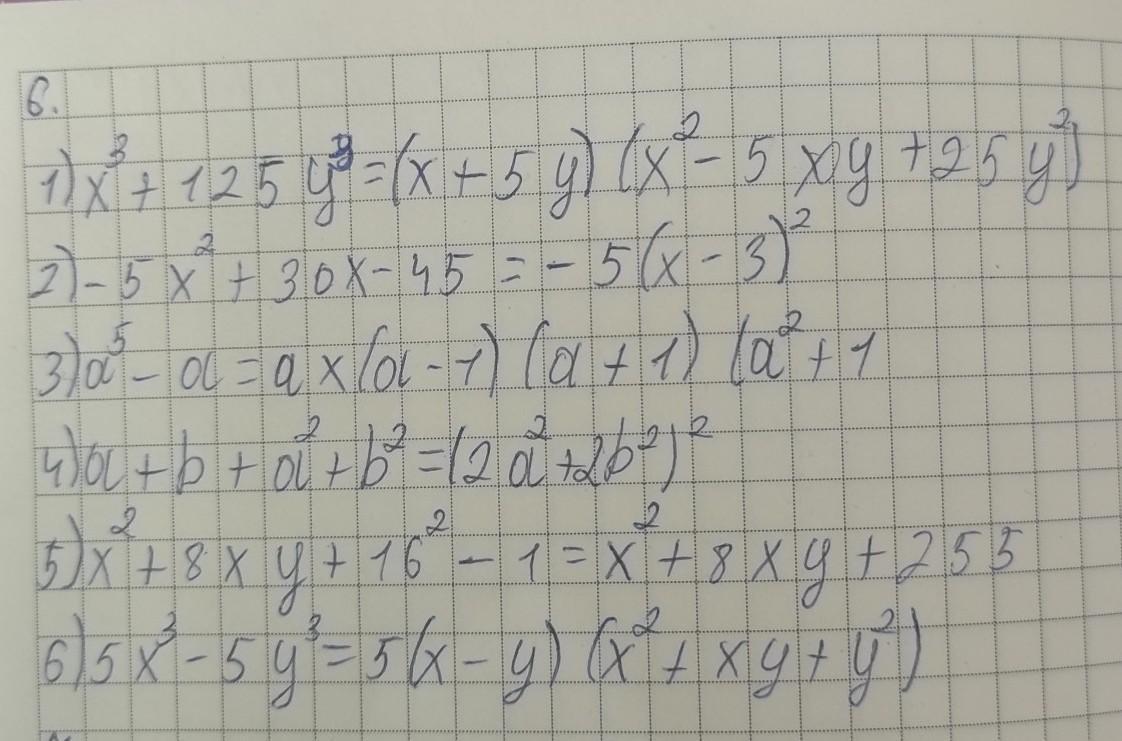 6.
1) x³ + 125y³ = (x + 5y) (x² - 5xy + 25y²)
2) - 5x² + 30x - 45 = - 5(x - 3)²
3) a⁵ - a = a × (a - 1) (a + 1) (a² + 1
4) a + b + a² + b² = (2a² + 2b²)²
5) x² + 8xy + 16² - 1 = x² + 8xy + 255
6) 5x³ - 5y³ = 5(x - y) (x² + xy + y²)